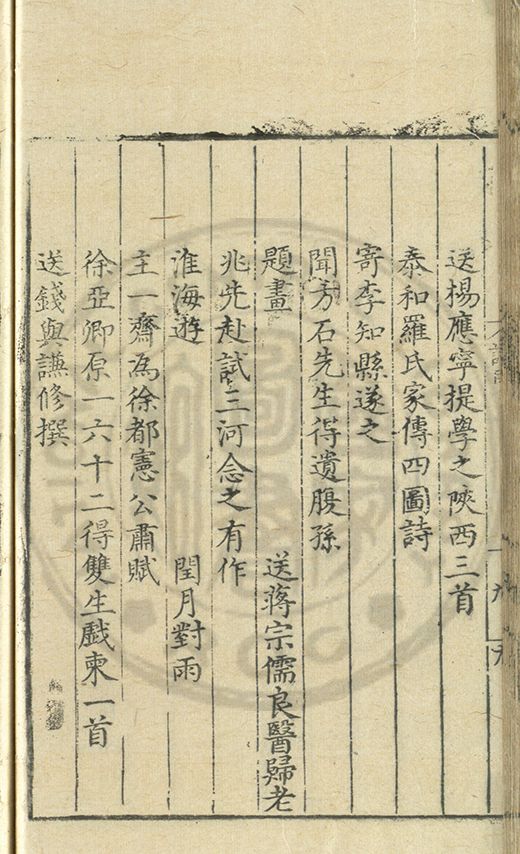 送楊應寧提學之陝西三首
泰和羅氏家傳四圖詩
寄李知縣遂之
聞芳石先生得遺腹孫
題畫 送蔣宗儒良醫歸老
兆先赴試三河念之有作
淮海遊 閏月對雨
主一齋為徐都憲公肅賦
徐亞卿原一六十二得雙生戲柬一首
送錢與謙修撰